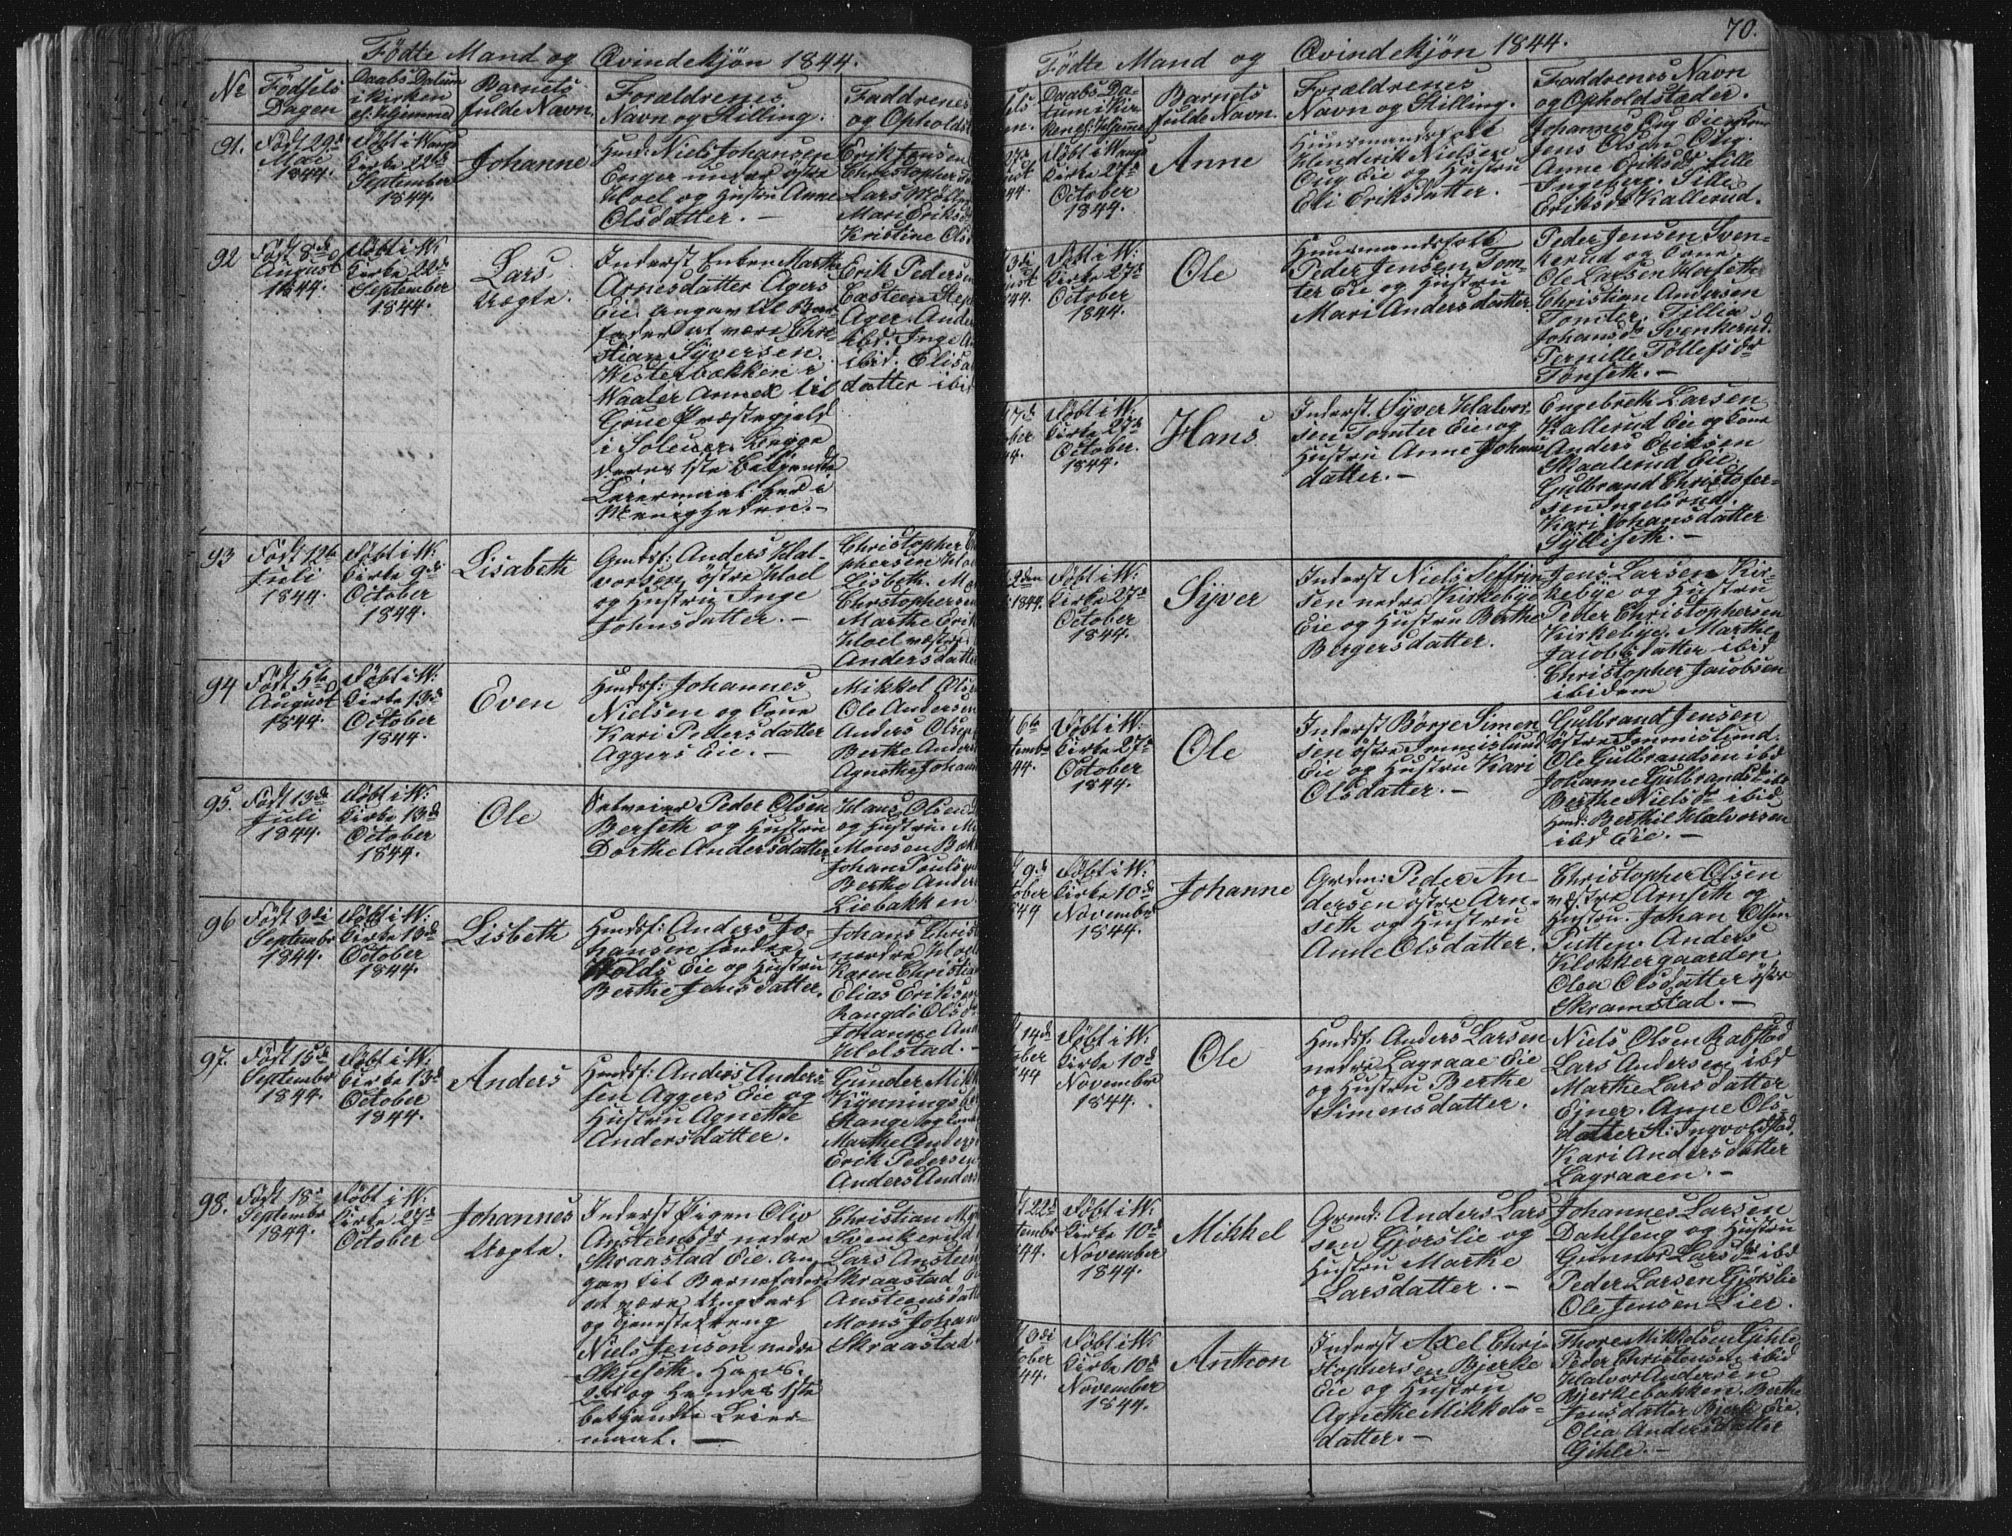 Fødte Mand og Qvindekjøn 1844.
No
Fødsels
Dagen
Daabs Datum
i Kirken
el: Hjemme
Barnets
fulde Navn
Forældrenes
Navn og Stilling.
Faddrenes
og Opholdst
91.
Født 29de
Mai
1844.
Døbt i Wangs
Kirke 22de
September
1844.
Johanne
Huusf: Niels Johansen
Enger under østre
Hoel og Hustru Anne
Olsdatter. —
Erik Jensen
Christopher
Lars
Mari Eriks
Kristine Ols
92
Født 8de
August
1844.
Døbt i W:
Kirke 22de
September
1844.
Lars
Uægte.
Inderst Enken Marthe
Arnesdatter Agers
Eie. angav til Bar-
fader at være Chri-
stian Syversen
Westerbækken i
Waaler Annex til
Grue Præstegjeld
i Soleuer. Begge
deres 1ste bekjendte
Leiermaal her i
Menigheden. —
Erik Peders
Casteen
Ager. Ande
ibd. Inge
ibid. Elisa
datter ibid
93
Født 12te
Juli
1844.
Døbt i W:
Kirke 9de
October
1844.
Lisabeth
Gmdsf: Anders Hal-
vorsen østre Hoel
og Hustru Inge
Johnsdatter. —
Christopher
phersen Ho
Lisbeth. Ma
Christophersen
Marthe Erik
Hoel vestre
Andersdatte
94
Født 5te
August
1844.
Døbt i W:
Kirke 13de
October
1844.
Even
Hmdsf: Johannes
Nielsen og Kone
Kari Pedersdatter
Aggers Eie. —
Mikkel Ols
Ole Andersen
Anders Olse
Berthe Anders
Agnethe Johann
95.
Født 13de
Juli
1844.
Døbt i W:
Kirke 13de
October
1844.
Ole
Selveier Peder Olsen
Berseth og Hustru
Dorthe Andersdatter
Hans Olsen
og Hustru. M
Monsen Bæk
Johan Poulsen
Berthe Ander
Liebakken
96
Født 3die
September
1844.
Døbt i W:
Kirke 13de
October
1844.
Lisbeth
Hmdsf: Anders Jo-
hansen søndre
Wolds Eie og Hustru
Berthe Jensdatter.
Johans Chris
nordre Hoel
Karen Christia
Elias Eriksen
Rangdi Olsd
Johanne And
Holstad. —
97.
Født 15de
September
1844.
Døbt i W:
Kirke 13de
October
1844.
Anders
Hmdsf: Anders Anders-
sen Aggers Eie og
Hustru Agnethe
Andersdatter.
Gunder Mikk
Kynnings
Stange og kone
Marthe Anders
Erik Pedersen
Anders Anders
98.
Født 18de
September
1844.
Døbt i W:
Kirke 27de
October
Johannes
Uægte.
Inderst Pigen Oliv
Austeensdr nedre
Skraastad Eie. An-
gav til Barnefader
at være Ungkarl
og Tjenestedreng
Niels Jensen nedre
Skjeseth. Hans
2det og Hendes 1ste
bekjendte Leier-
maal. —
Christian M
Svenkerud
Lars Austeen
Skraastad
Austeensdat
Mons Johan
Skraastad
70.
Fødte Mand og Qvindekjøn 1844.
Daabs Da-
tum i Kir-
ken el: Hjemme
Barnets
fulde Navn.
Forældrenes
Navn og Stilling.
Faddrenes Navn
og Opholdsstæder.
27de
ust
44.
Døbt i Wangs
Kirke 27de
October
1844.
Anne
Huusmandsfolk
Henderik Nielsen
Oug Eie og Hustru
Eli Eriksdatter.
Johannes Oug Eie
Jens Olsen Oug
Anne Eriksdr Lille
Ingeberg. Sille
Eriksdr Kallerud.
3de
ust
44.
Døbt i W:
Kirke 27de
October
1844.
Ole
Huusmandsfolk
Peder Jensen Tom-
ter Eie og Hustru
Mari Andersdatter
Peder Jensen Sven-
kerud og Kone.
Ole Larsen Horseth
Christian Andersen
Tomter. Tillia
Johansdr Svenkerud.
Pernille Tollefsdr
Tønseth. —
7de
ober
44.
Døbt i W:
Kirke 27de
October.
1844.
Hans
Inderst Syver Halvor-
sen Tomter Eie og
Hustru Anne Johans
datter. —
Engebreth Larsen
Kallerud Eie og Kone
Anders Eriksen
Skaalerud Eie.
Gulbrand Christofer-
sen Ingelsrud.
Kari Johansdatter
Sylliseth. —
9den
1844.
Døbt i W:
Kirke 27de
October
1844.
Syver
Inderst Niels Seffrin-
sen nedre Kirkebye
Eie og Hustru Berthe
Bergersdatter.
Jens Larsen Kir-
kebye og Hustru
Peder Christophersen
Kirkebye. Marthe
Jacobsdatter ibid
Christopher Jacobsen
ibidem
6te
tember
44.
Døbt i W:
Kirke 27de
October
1844.
Ole
Inderst Børje Simen
sen østre Immislund
Eie og Hustru Kari
Olsdatter. —
Gulbrand Jensen
østre Immislund.
Ole Gulbrandsen ibd
Johanne Gulbrandsdr.
Berthe Nielsdr ibid
Hmd: Berthil Halvorsen
ibd Eie. —
9de
tober
1844
Døbt i W:
Kirke 10de
November
1844.
Johanne
Grdm: Peder An-
dersen østre Arn-
seth og Hustru
Anne Olsdatter.
Christopher Olsen
vestre Arnseth og
Hustru. Johan Olsen
Putten. Anders
Klokkergaarden
Olea Olsdatter østre
Skramstad. —
14de
tober
1844
Døbt i W:
Kirke 10de
November
1844.
Ole
Hmdsf: Anders Larsen
nedre Lagraae Eie
og Hustru Berthe
Simensdatter.
Niels Olsen Rabstad
Lars Andersen ibid
Marthe Larsdatter
Ejner. Anne Ols-
datter St: Ingvoldstad.
Kari Andersdatter
Lagraaen. —
22de
tember
44.
Døbt i W:
Kirke 10de
November
1844.
Mikkel
Grmd: Anders Lars
sen Gjørslie og
Hustru Marthe
Larsdatter. —
Johannes Larsen
Dahlseng og Hustru
Gunnor Larsdr ibd
Peder Larsen Gjørslie
Ole Jensen Lier.
3die
tober
44.
Døbt i W:
Kirke 10de
November
1844.
Anthon
Inderst Axel Chri-
stophersen Bjerke
Eie og Hustru
Agnethe Mikkels-
datter. —
Thore Mikkelsen Gihle
Peder Christensen ibid
Halvor Andersen
Bjerkebakken. Berthe
Jensdatter Bjerke Eie.
Olia Andersdatter
Gihle. —